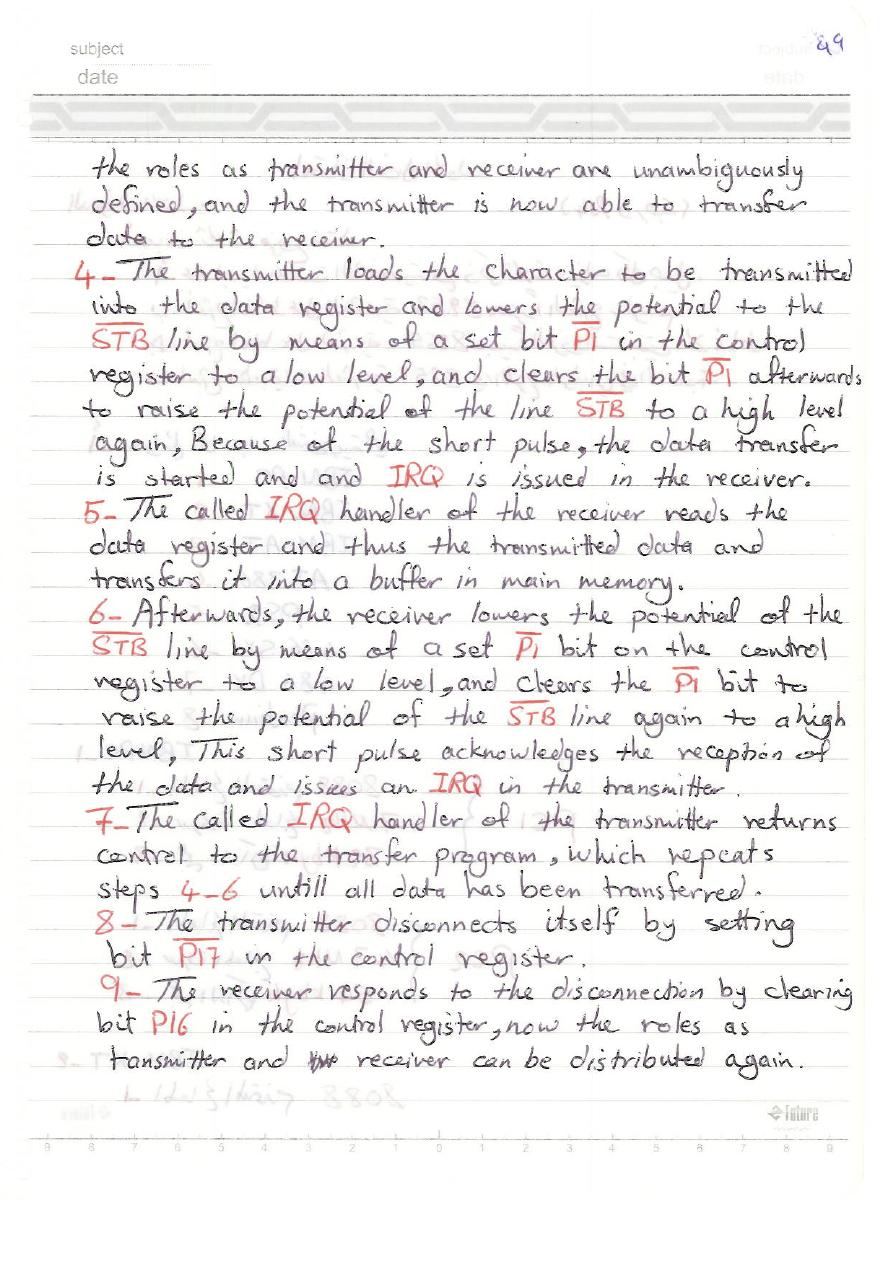 subject
date
49
the roles as transmitter and receiver are unambiguously
defined, and the transmitter is now able to transfer
data to the receiver.
4- The transmitter loads the character to be transmitted
into the data register and lowers the potential to the
S̅T̅B̅ line by means of a set bit P̅1̅ in the control
register to a low level, and clears the bit P̅1̅ afterwards
to raise the potential of the line S̅T̅B̅ to a high level
again, Because of the short pulse, the data transfer
is started and and IRQ is issued in the receiver.
5- The called IRQ handler of the receiver reads the
data register and thus the transmitted data and
transfers it into a buffer in main memory.
6- Afterwards, the receiver lowers the potential of the
S̅T̅B̅ line by means of a set P̅1̅ bit on the control
register to a low level, and clears the P̅1̅ bit to
raise the potential of the S̅T̅B̅ line again to a high
level, This short pulse acknowledges the reception of
the data and issues an IRQ in the transmitter.
7- The called IRQ handler of the transmitter returns
control to the transfer program, which repeats
steps 4-6 untill all data has been transferred.
8- The transmitter disconnects itself by setting
bit P̅1̅7̅ in the control register.
9- The receiver responds to the disconnection by clearing
bit P16 in the control register, now the roles as
tansmitter and receiver can be distributed again.
Future
9 8 7 6 5 4 3 2 1 0 1 2 3 4 5 6 7 8 9